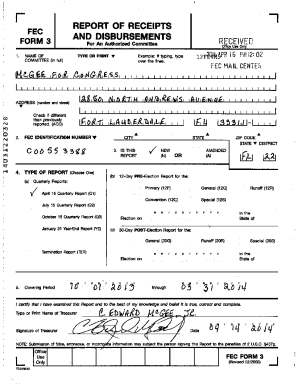 FEC
FORM 3
REPORT OF RECEIPTS
AND DISBURSEMENTS
For An Authorized Committee
RECEIVED
Office Use Only
FEC MAIL CENTER
1. NAME OF
COMMITTEE (in full)
TYPE OR PRINT
Example: If typing, type
over the lines.
McGEE FOR CONGRESS
ADDRESS (number and street)
NORTH ANDREWS AVENUE
Check if different
than previously
reported. (ACC)
FORT LAUDERDALE
FL
2. FEC IDENTIFICATION NUMBER
CITY
STATE
ZIP CODE
STATE DISTRICT
C00553388
3. IS THIS
REPORT
NEW
(N)
OR
AMENDED
(A)
FL 22
4. TYPE OF REPORT (Choose One)
(a) Quarterly Reports:
April 15 Quarterly Report (Q1)
July 15 Quarterly Report (Q2)
October 15 Quarterly Report (Q3)
January 31 Year-End Report (YE)
Termination Report (TER)
(b) 12-Day PRE-Election Report for the:
Primary (12P)
General (12G)
Runoff (12R)
Convention (12C)
Special (12S)
Election on
in the
State of
(c) 30-Day POST-Election Report for the:
General (30G)
Runoff (30R)
Special (30S)
Election on
in the
State of
5. Covering Period
through
03 31 2014
I certify that I have examined this Report and to the best of my knowledge and belief it is true, correct and complete.
Type or Print Name of Treasurer
C. EDWARD McGEE, JR.
Signature of Treasurer
Date
04 14 2014
NOTE: Submission of false, erroneous, or incomplete information may subject the person signing this Report to the penalties of 2 U.S.C. §437g.
Office
Use
Only
FEC FORM 3